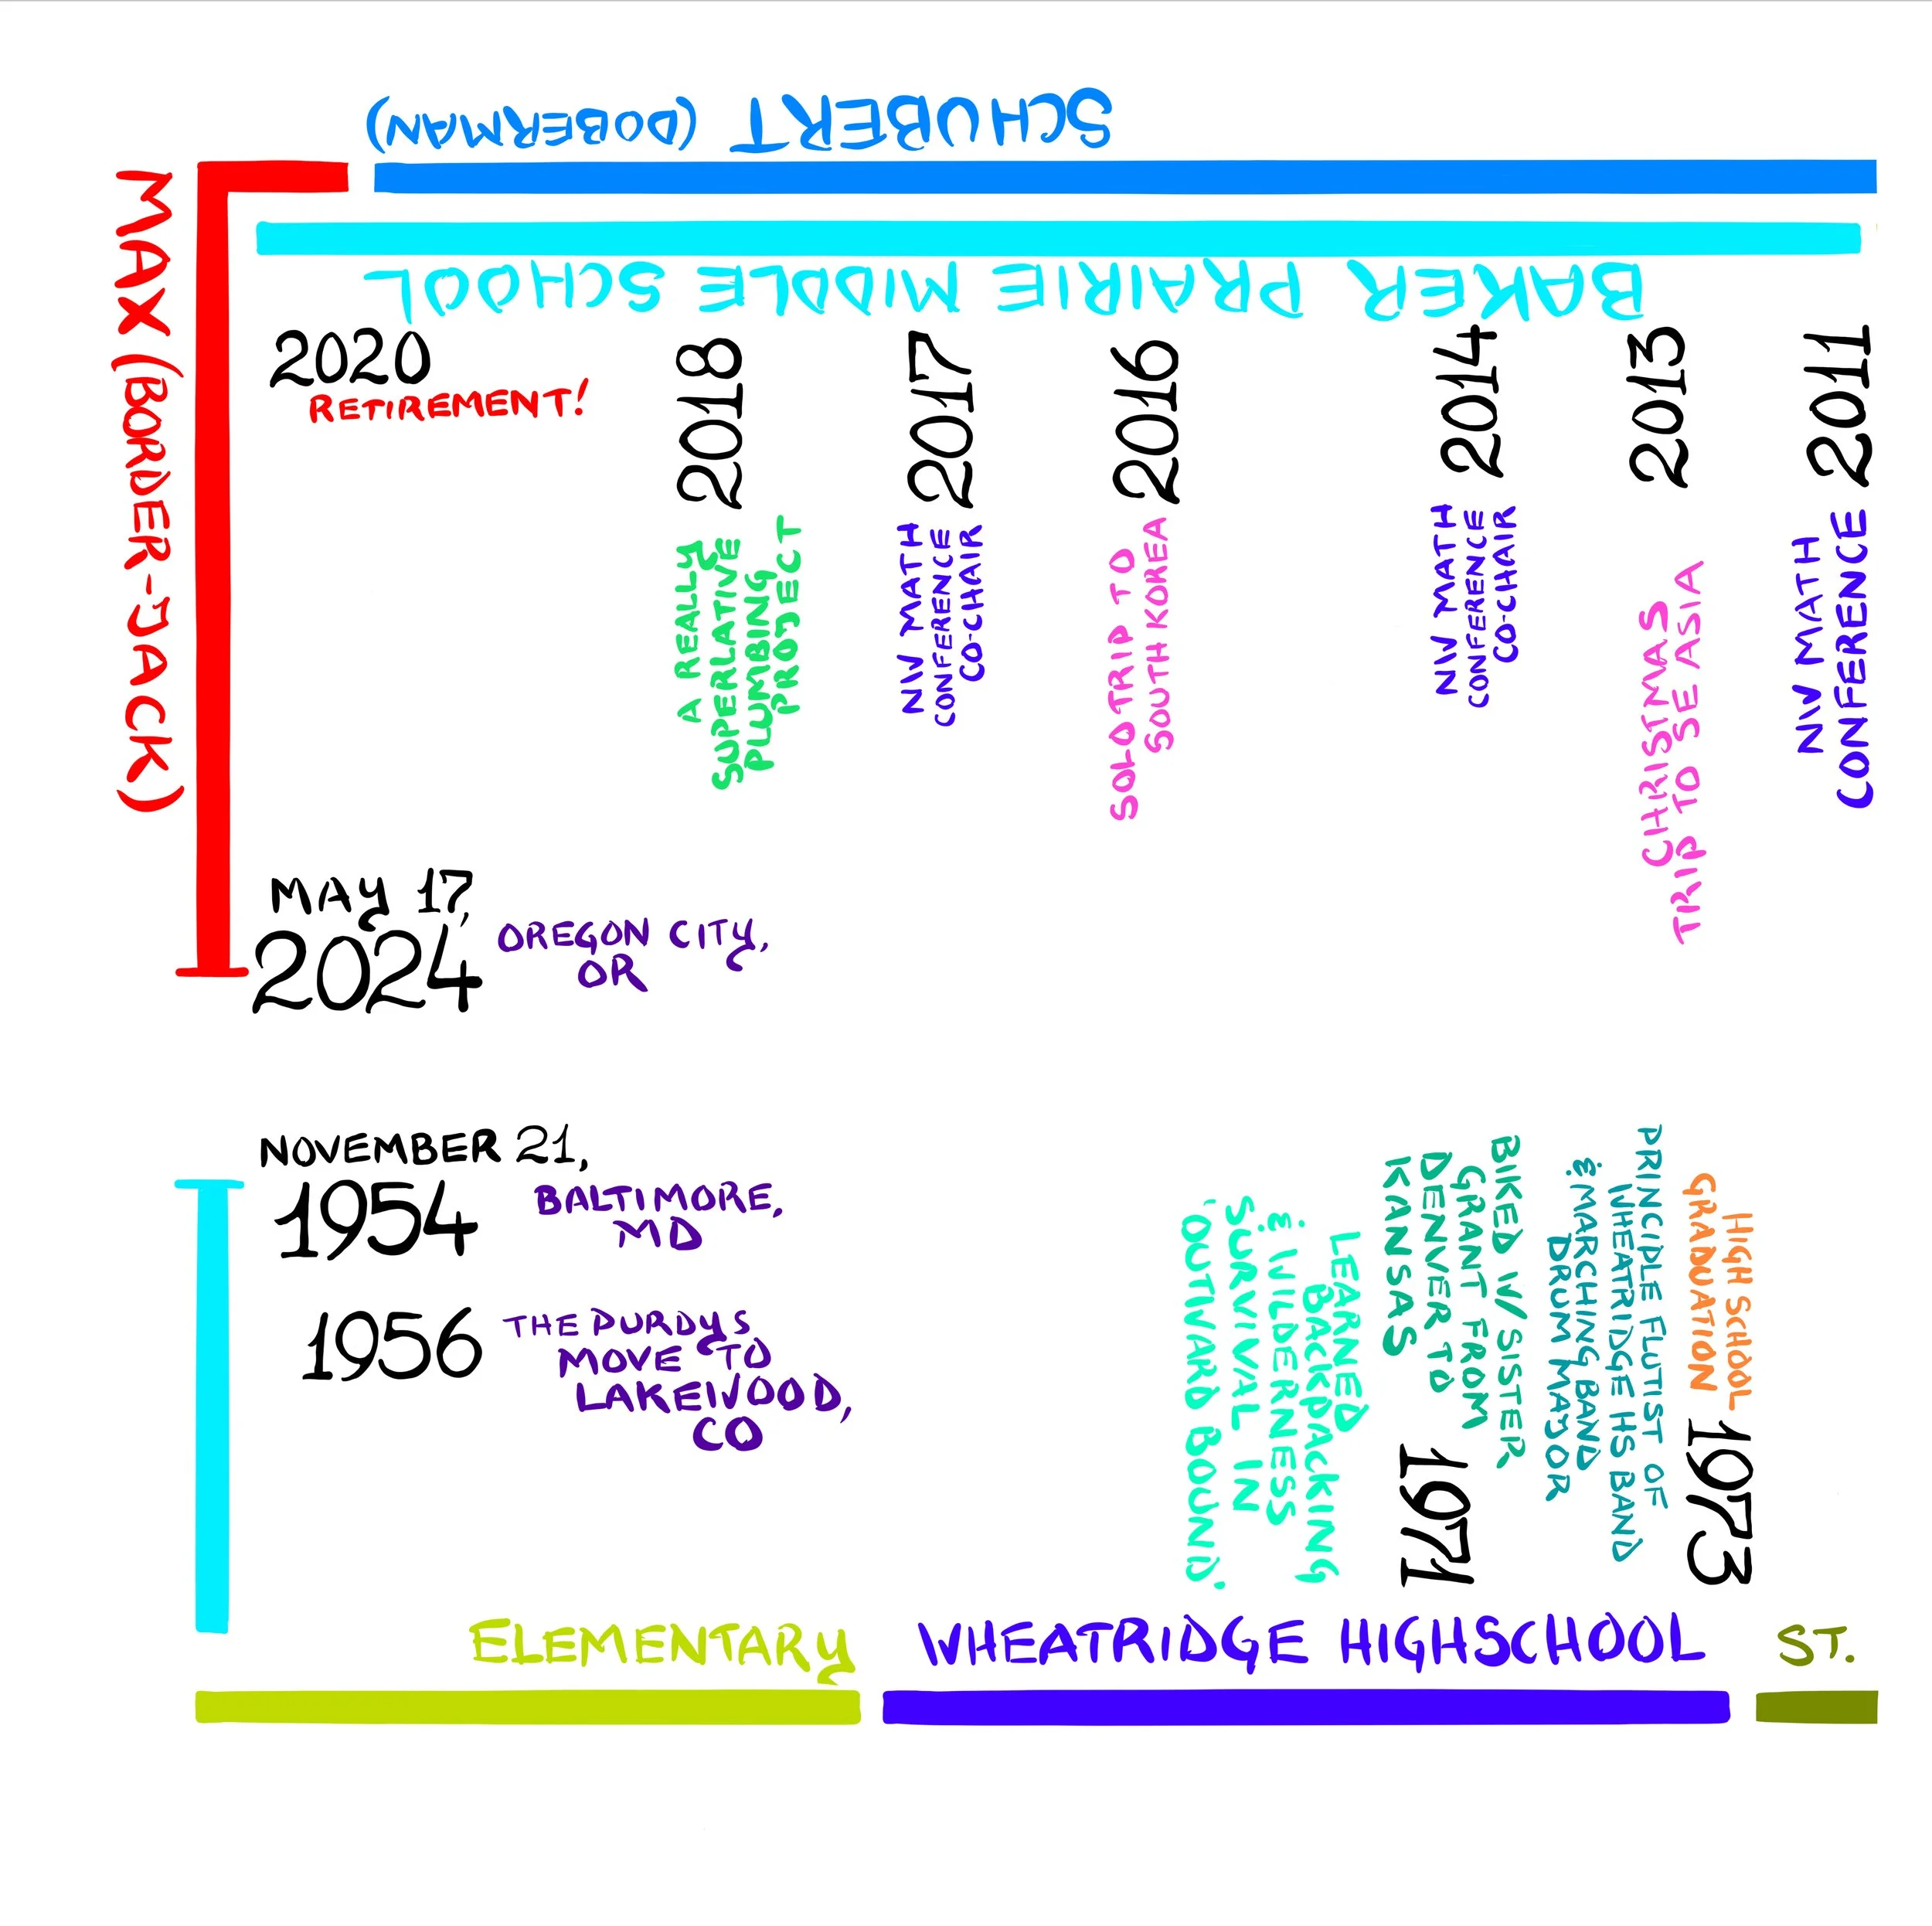 SCHUBERT (DOBERMAN)
MAX (BORDER-JACK)
BAKER PRAIRIE MIDDLE SCHOOL
2020
RETIREMENT!
2018
A REALLY
SUPERLATIVE
PLUMBING
PROJECT
2017
NW MATH
CONFERENCE
CO-CHAIR
2016
SOLO TRIP TO
SOUTH KOREA
2014
NW MATH
CONFERENCE
CO-CHAIR
2013
CHRISTMAS
TRIP TO SE ASIA
2011
NW MATH
CONFERENCE
MAY 17,
2024
OREGON CITY,
OR
NOVEMBER 21,
1954
BALTIMORE,
MD
1956
THE PURDYS
MOVE TO
LAKEWOOD,
CO
LEARNED
BACKPACKING
& WILDERNESS
SURVIVAL IN
'OUTWARD BOUND'
1971
BIKED W/ SISTER
GRANT FROM
DENVER TO
KANSAS
PRINCIPLE FLUTIST OF
WHEATRIDGE HS BAND
& MARCHING BAND
DRUM MAJOR
1973
HIGH SCHOOL
GRADUATION
ELEMENTARY
WHEATRIDGE HIGHSCHOOL
ST.